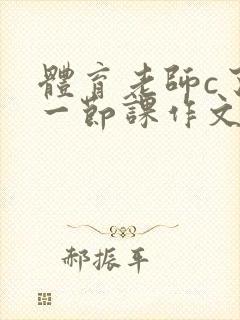 體育老師c
一節課作文
郝振平